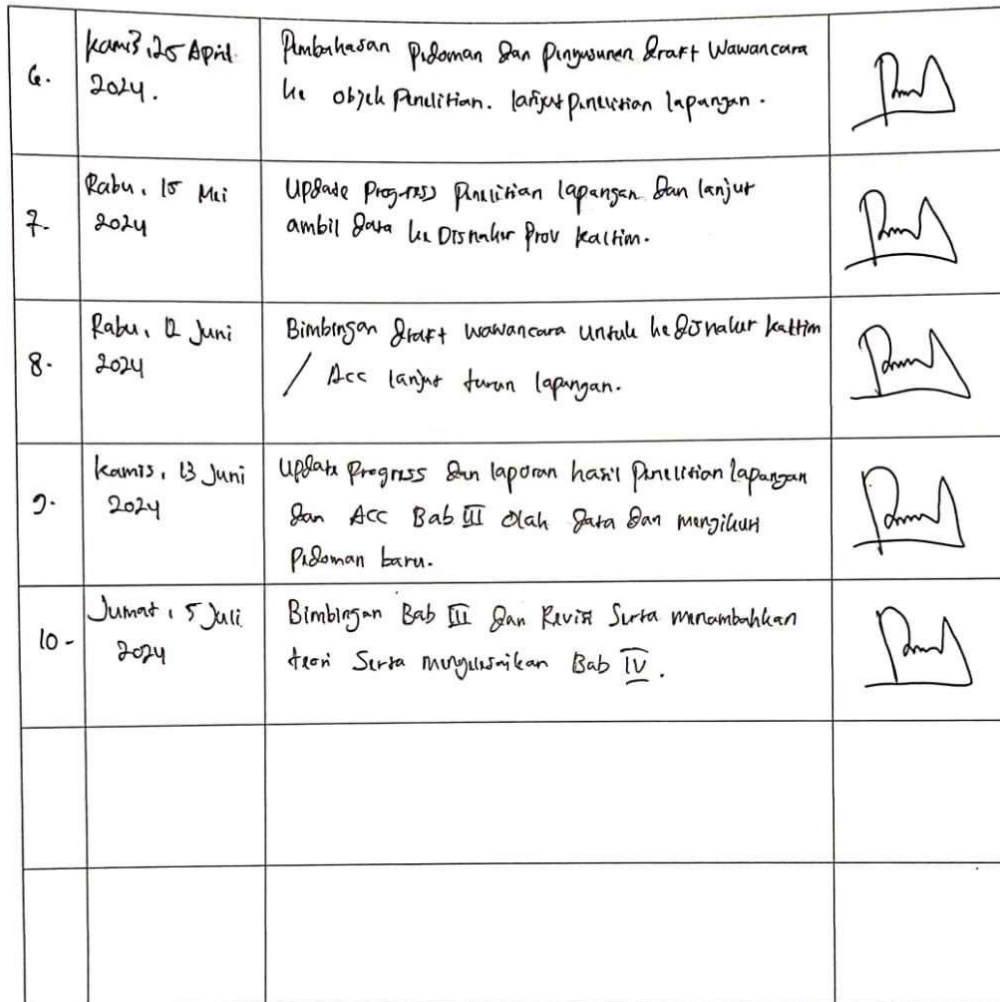 6.
Kamis, 25 April
2024.
Pembahasan Pedoman dan Penyusunan draft Wawancara
ke objek Penelitian. lanjut penelitian lapangan.
7.
Rabu, 15 Mei
2024
Update Progress Penelitian lapangan dan lanjut
ambil data ke Disnaker Prov Kaltim.
8.
Rabu, 12 Juni
2024
Bimbingan draft wawancara untuk ke disnaker kaltim
/ Acc lanjut turun lapangan.
9.
Kamis, 13 Juni
2024
Update Progress dan laporan hasil Penelitian lapangan
dan ACC Bab III Olah data dan mengikuti
Pedoman baru.
10-
Jumat, 5 Juli
2024
Bimbingan Bab III dan Revisi Serta menambahkan
teori Serta menyelesaikan Bab IV.